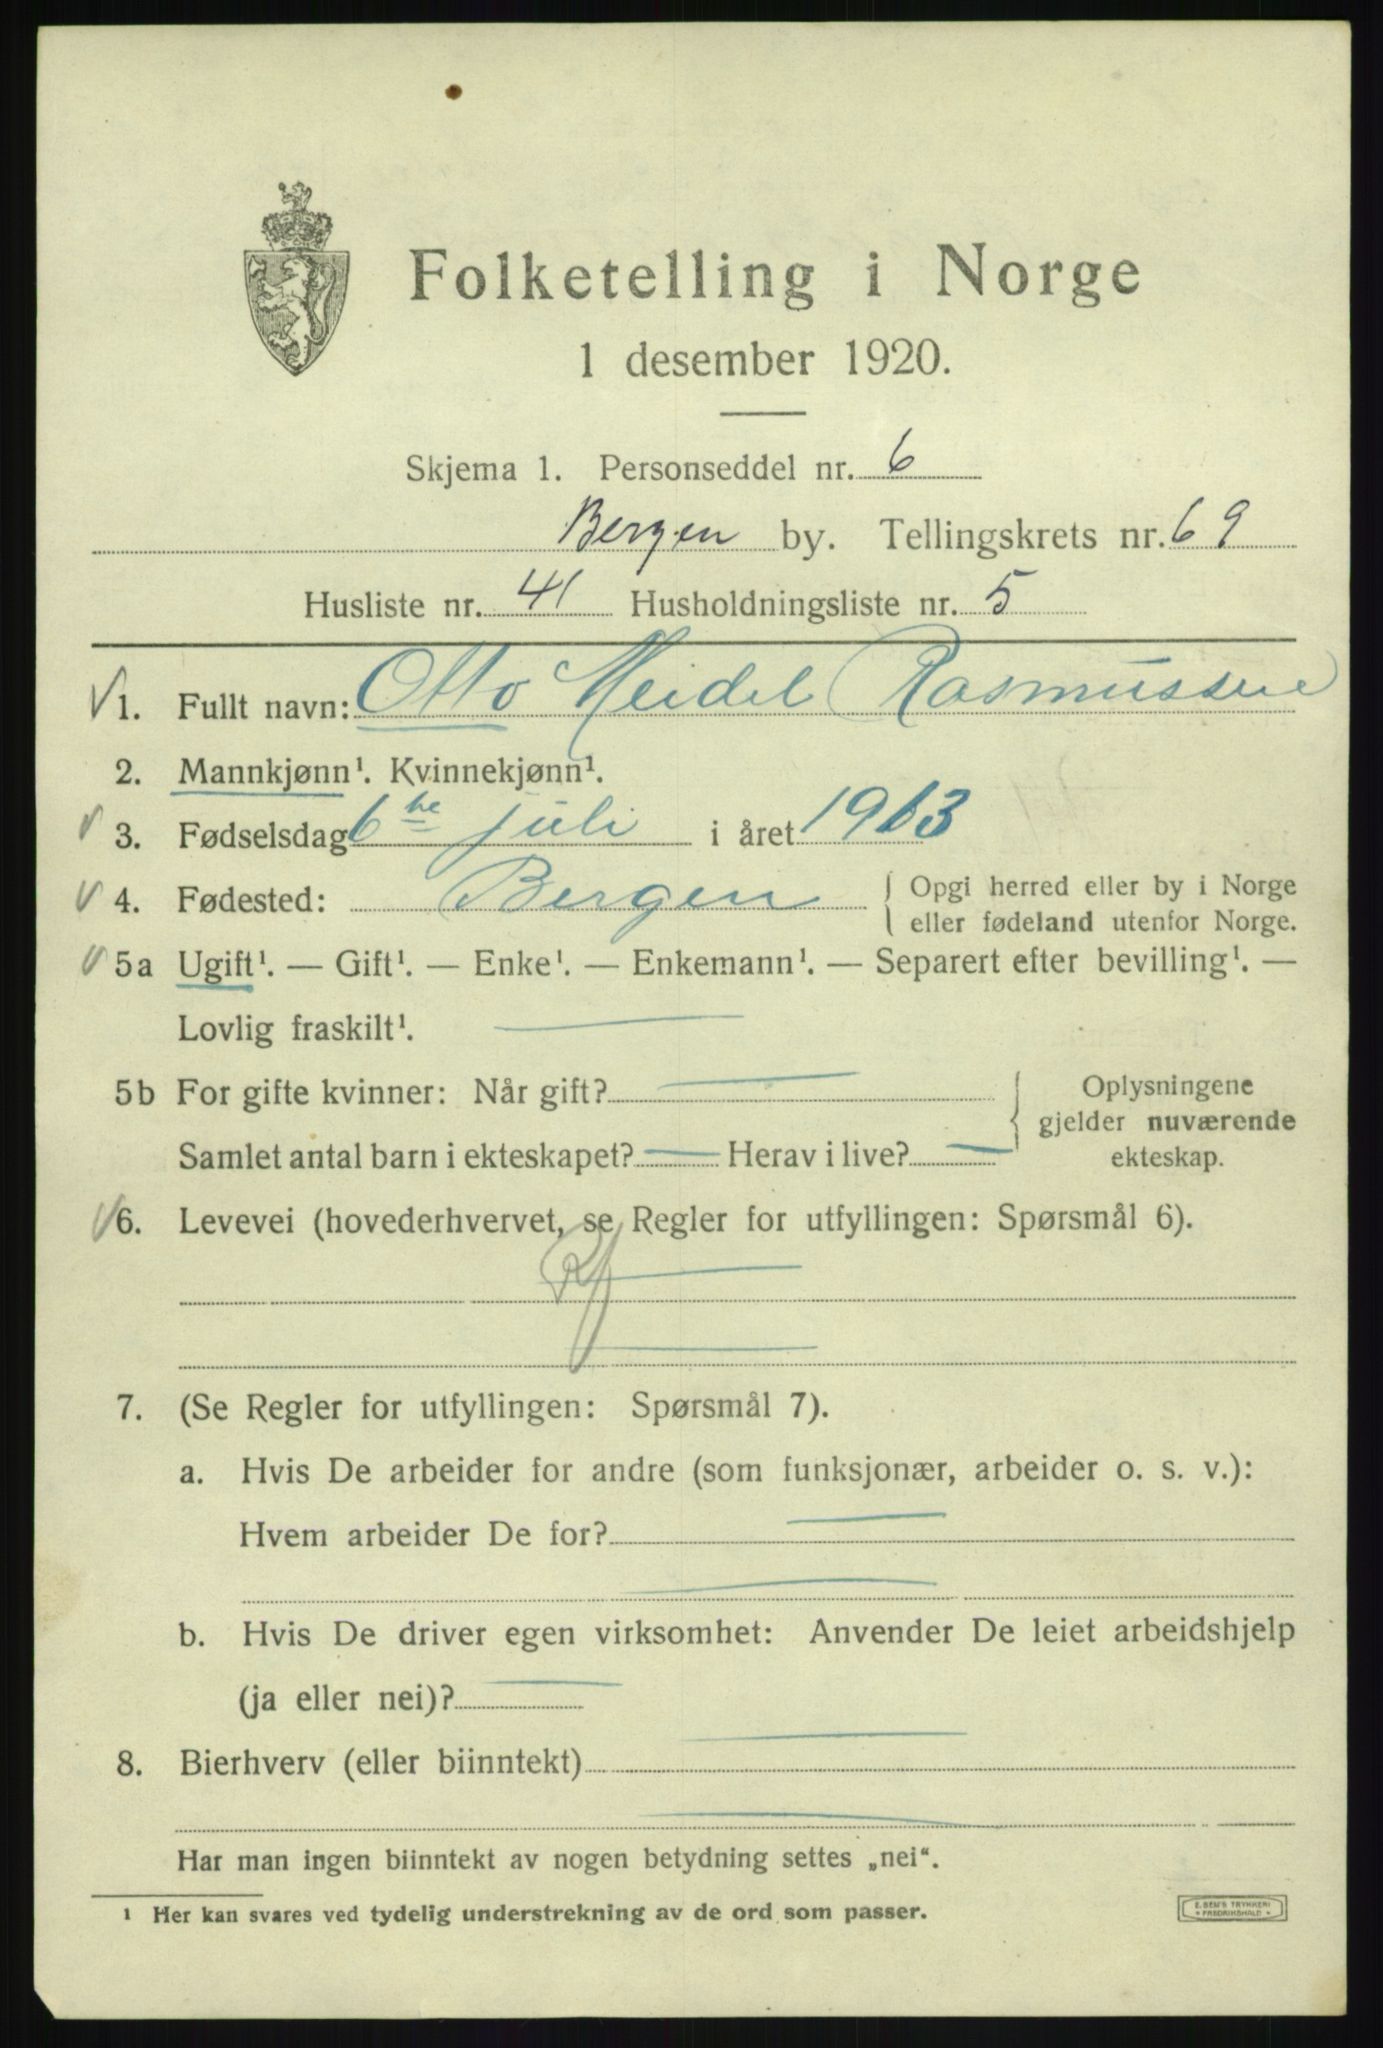 Folketelling i Norge
1 desember 1920.
Skjema 1. Personseddel nr. 6
Bergen by. Tellingskrets nr. 69
Husliste nr. 41 Husholdningsliste nr. 5
1. Fullt navn: Otto Meidel Rasmussen
2. Mannkjønn¹. Kvinnekjønn¹.
3. Fødselsdag 6te juli i året 1913
4. Fødested: Bergen { Opgi herred eller by i Norge
eller fødeland utenfor Norge.
5a Ugift¹. — Gift¹. — Enke¹. — Enkemann¹. — Separert efter bevilling¹. —
Lovlig fraskilt¹.
5b For gifte kvinner: Når gift? —
Samlet antal barn i ekteskapet? — Herav i live? —
{ Oplysningene
gjelder nuværende
ekteskap.
6. Levevei (hovederhvervet, se Regler for utfyllingen: Spørsmål 6).
7. (Se Regler for utfyllingen: Spørsmål 7).
a. Hvis De arbeider for andre (som funksjonær, arbeider o. s. v.):
Hvem arbeider De for? —
b. Hvis De driver egen virksomhet: Anvender De leiet arbeidshjelp
(ja eller nei)? —
8. Bierhverv (eller biinntekt) —
Har man ingen biinntekt av nogen betydning settes „nei“.
¹ Her kan svares ved tydelig understrekning av de ord som passer.
E. SEM'S TRYKKERI
FREDRIKSHALD